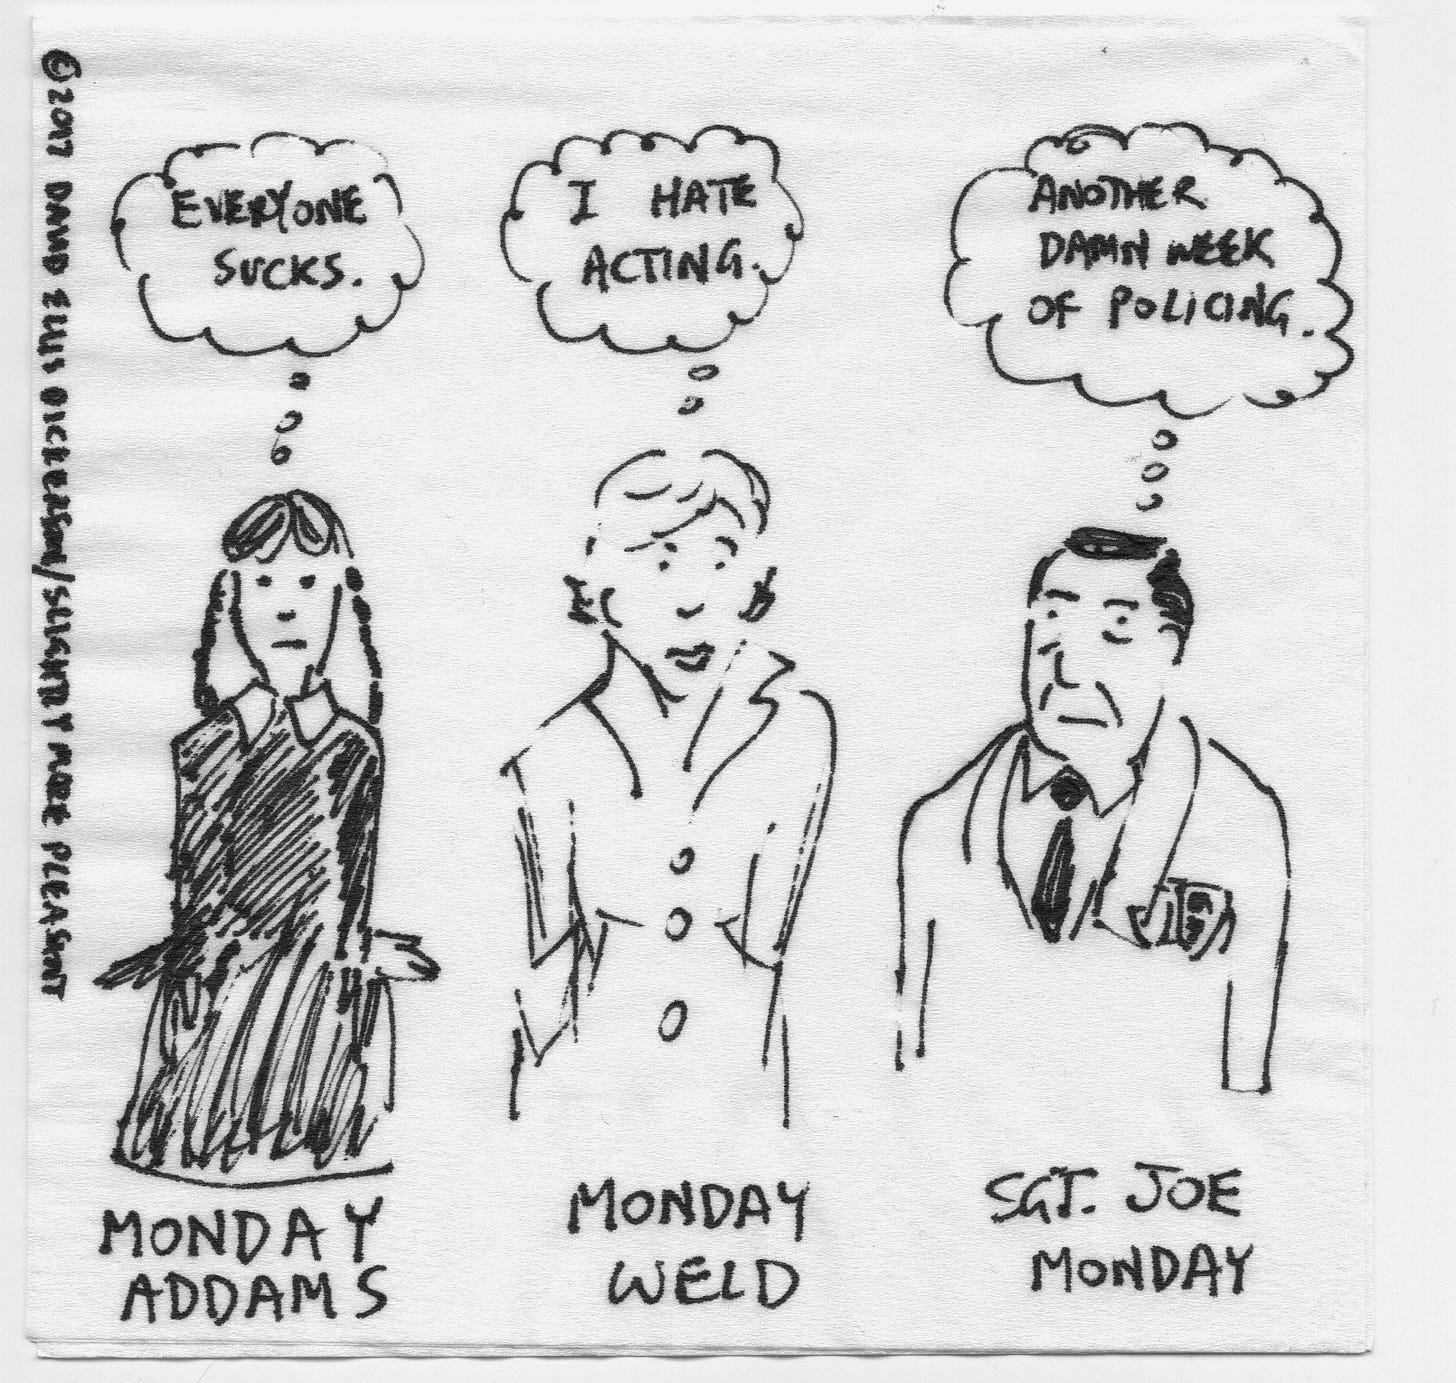 ©2017 DAVID ELLIS DICKERSON/SLIGHTLY MORE PLEASANT
EVERYONE
SUCKS.
I HATE
ACTING.
ANOTHER
DAMN WEEK
OF POLICING.
MONDAY
ADDAMS
MONDAY
WELD
SGT. JOE
MONDAY